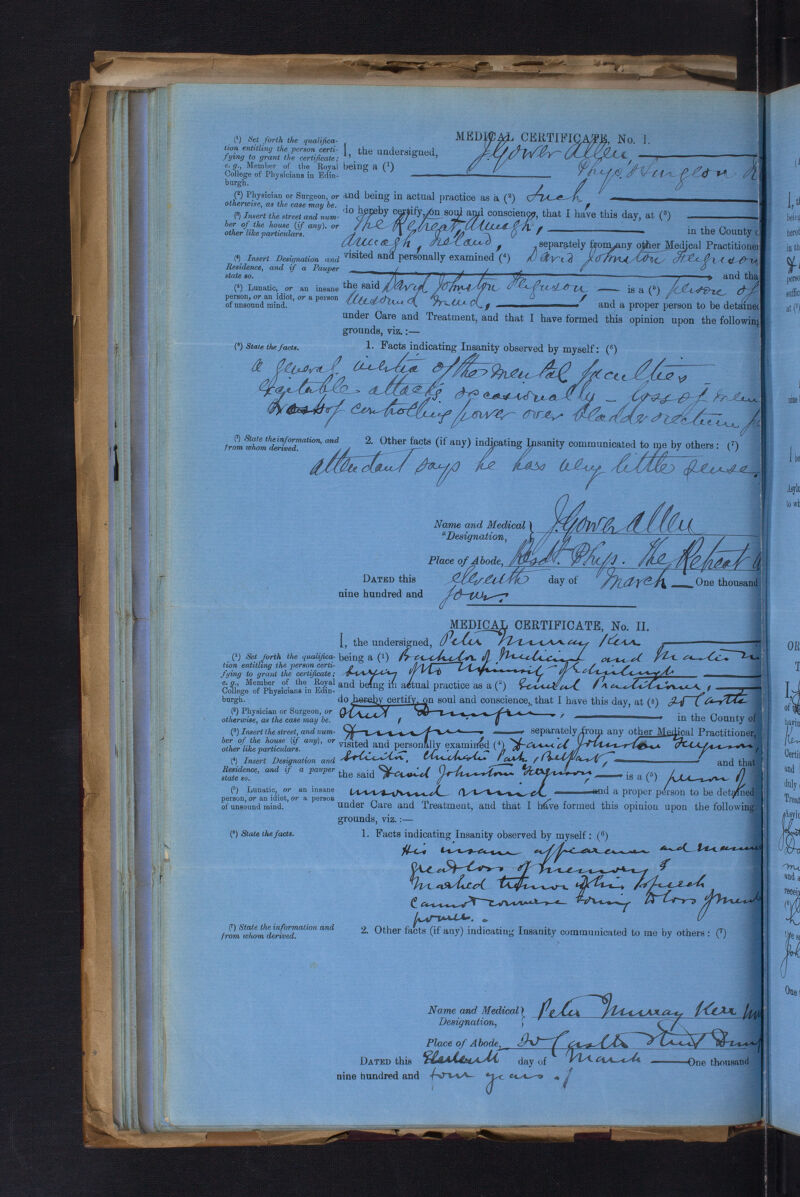 MEDICAL CERTIFICATE, No. I.
(¹) Set forth the qualifica-
tion entitling the person certi-
fying to grant the certificate;
e. g., Member of the Royal
College of Physicians in Edin-
burgh.
I, the undersigned, J. Gower Allen,
being a (¹) Phys. & Surgeon
(²) Physician or Surgeon, or
otherwise, as the case may be.
and being in actual practice as a (²) Such,
(³) Insert the street and num-
ber of the house (if any), or
other like particulars.
do hereby certify, on soul and conscience, that I have this day, at (³)
The Retreat, Armagh, in the County
Armagh, Ireland, separately from any other Medical Practitioner
(⁴) Insert Designation and
Residence, and if a Pauper
state so.
visited and personally examined (⁴) David Johnston Ferguson
and tha
(⁵) Lunatic, or an insane
person, or an idiot, or a person
of unsound mind.
the said David Johnston Ferguson is a (⁵) person of
unsound mind, and a proper person to be detained
under Care and Treatment, and that I have formed this opinion upon the following
grounds, viz.:—
(⁶) State the facts.
1. Facts indicating Insanity observed by myself: (⁶)
a general inertia of the mental faculties
excitable attacks occasionally - loss of
loss of controlling power over bladder & rectum
(⁷) State the information, and
from whom derived.
2. Other facts (if any) indicating Insanity communicated to me by others: (⁷)
attendant says he has very little sense.
Name and Medical
Designation, J. Gower Allen
Place of Abode, Resdt. Phys. The Retreat
DATED this eleventh day of March One thousand
nine hundred and four.
MEDICAL CERTIFICATE, No. II.
I, the undersigned, Peter Murray Kerr
(¹) Set forth the qualifica-
tion entitling the person certi-
fying to grant the certificate;
e. g., Member of the Royal
College of Physicians in Edin-
burgh.
being a (¹) Bachelor of Medicine and Master in
Surgery of the University of Edinburgh
and being in actual practice as a (²) General Practitioner,
(²) Physician or Surgeon, or
otherwise, as the case may be.
do hereby certify, on soul and conscience, that I have this day, at (³) 20 Castle
Street, Dumfries, in the County of
(³) Insert the street, and num-
ber of the house (if any), or
other like particulars.
Dumfries, separately from any other Medical Practitioner,
visited and personally examined (⁴) David Johnston Ferguson,
(⁴) Insert Designation and
Residence, and if a pauper
state so.
Solicitor, Chichester Park, Belfast, and that
the said David Johnston Ferguson, is a (⁵) person of
(⁵) Lunatic, or an insane
person, or an idiot, or a person
of unsound mind.
unsound mind and a proper person to be detained
under Care and Treatment, and that I have formed this opinion upon the following
grounds, viz.:—
(⁶) State the facts.
1. Facts indicating Insanity observed by myself: (⁶)
His insane appearance and manner
great loss of memory &
marked tremor of his speech
Cannot converse owing to loss of
power.
(⁷) State the information and
from whom derived.
2. Other facts (if any) indicating Insanity communicated to me by others: (⁷)
Name and Medical
Designation, Peter Murray Kerr
Place of Abode, 20 Castle Street
DATED this Eleventh day of March One thousand
nine hundred and four years